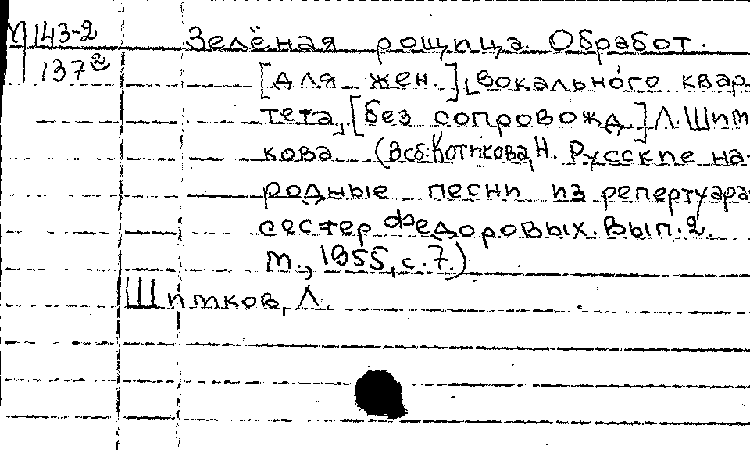 М 143-2
137²
Зелёная рощица. Обработ.
[для жен.] вокального квар-
тета, [без сопровожд.] Л. Шим-
кова (В сб: Котикова, Н. Русские на-
родные песни из репертуара
сестер Федоровых. Вып. 2.
М., 1955, с. 7.)
Шимков, Л.